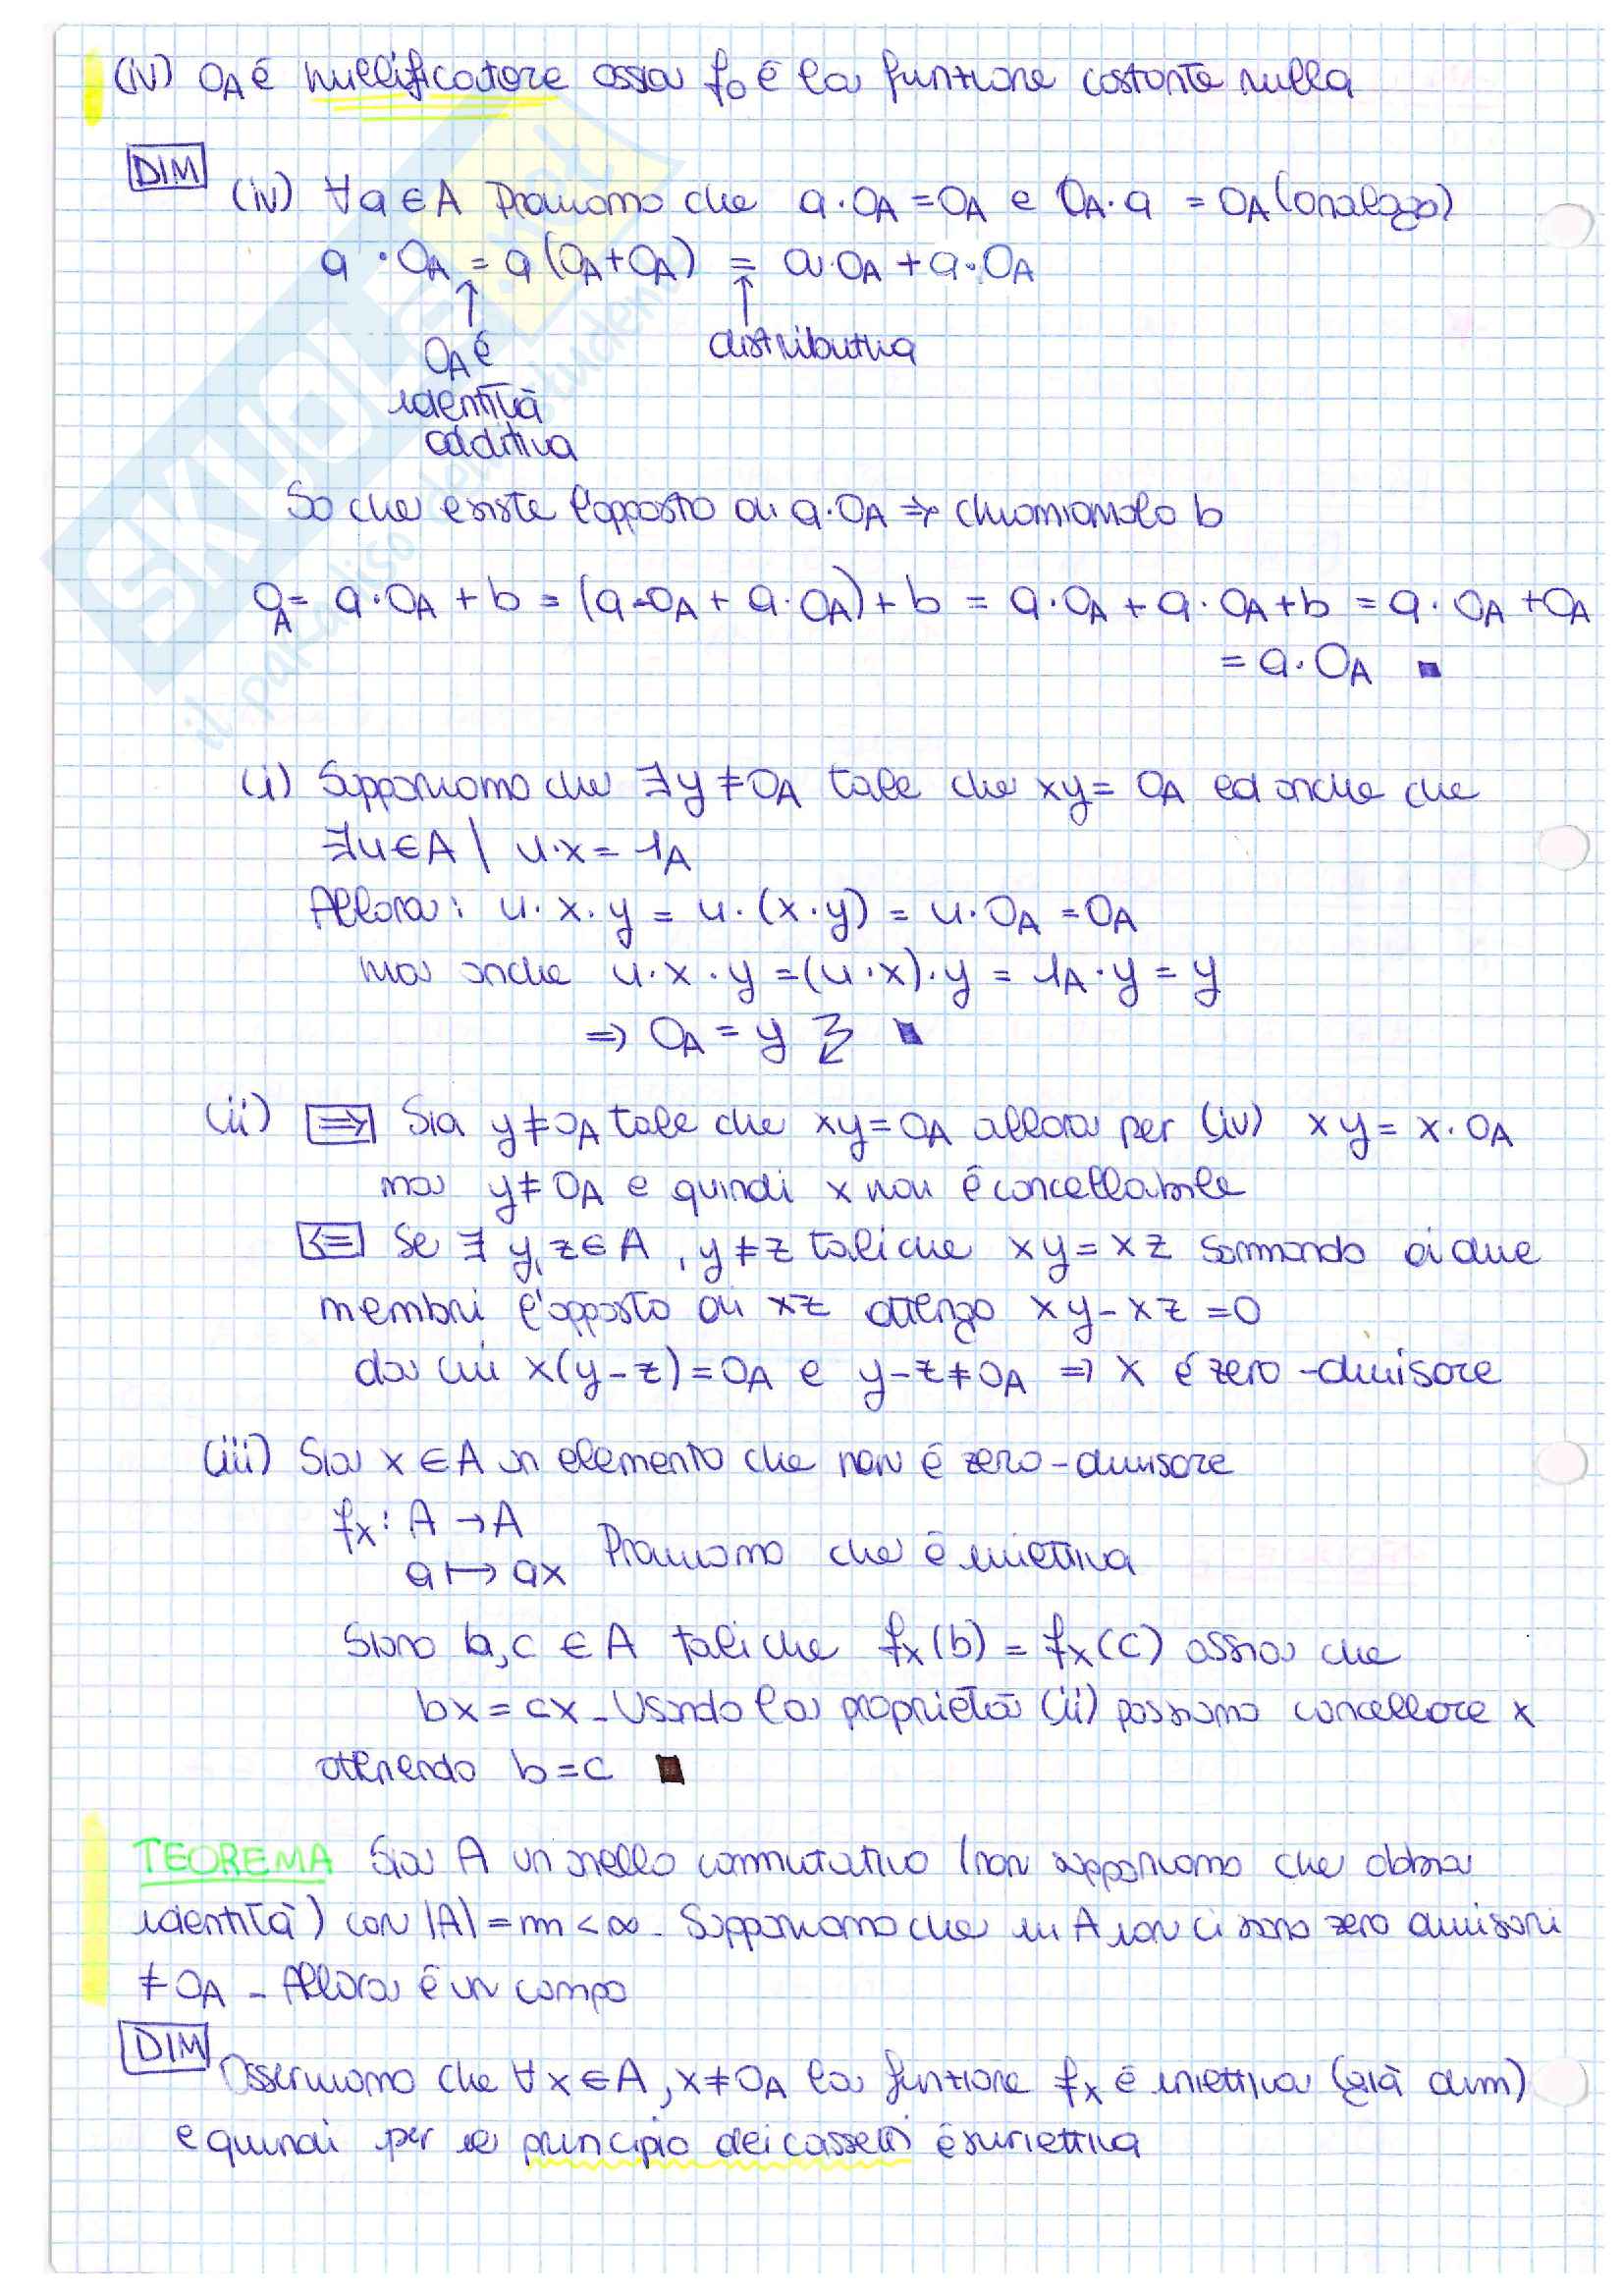 (iv) 0A é nullificatore ossia f0 é la funzione costante nulla
DIM
(iv) ∀a∈A Proviamo che a·0A = 0A e 0A·a = 0A (analogo)
a·0A = a(0A+0A) = a·0A + a·0A
↑ ↑
0A é distributiva
identità
additiva
So che esiste l'opposto di a·0A ⇒ chiamiamolo b
0A = a·0A + b = (a·0A + a·0A) + b = a·0A + a·0A + b = a·0A + 0A
= a·0A ■
(i) Supponiamo che ∃y≠0A tale che xy = 0A ed anche che
∃u∈A | u·x = 1A
Allora: u·x·y = u·(x·y) = u·0A = 0A
ma anche u·x·y = (u·x)·y = 1A·y = y
⇒ 0A = y ↯ ■
(ii) ⇒ Sia y≠0A tale che xy = 0A allora per (iv) xy = x·0A
ma y≠0A e quindi x non é cancellabile
⇐ Se ∃ y,z∈A, y≠z tali che xy = xz sommando ai due
membri l'opposto di xz ottengo xy - xz = 0
da cui x(y-z) = 0A e y-z≠0A ⇒ x é zero-divisore
(iii) Sia x∈A un elemento che non é zero-divisore
fx: A → A
a ↦ ax Proviamo che é iniettiva
Siano b,c ∈ A tali che fx(b) = fx(c) ossia che
bx = cx - Usando la proprietà (ii) possiamo cancellare x
ottenendo b = c ■
TEOREMA Sia A un anello commutativo (non supponiamo che abbia
identità) con |A| = m < ∞ - Supponiamo che in A non ci sono zero divisori
≠ 0A - Allora é un campo
DIM
Osserviamo che ∀x∈A, x≠0A la funzione fx é iniettiva (già dim)
e quindi per il principio dei cassetti é suriettiva
SKUOLA.net
il paradiso dello studente